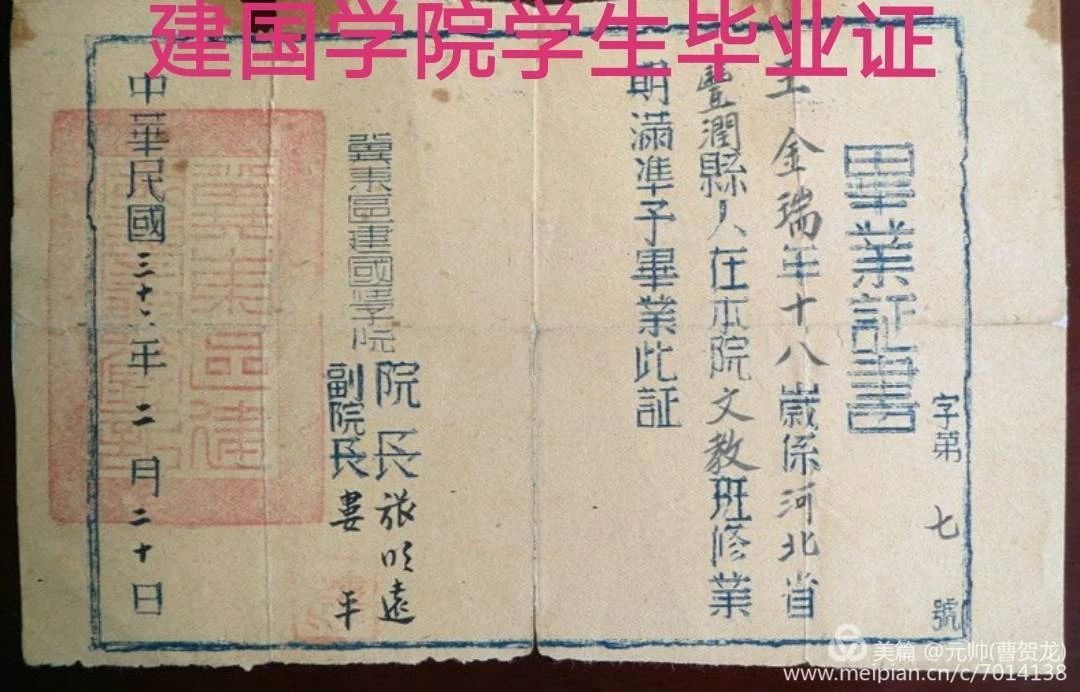 建国学院学生毕业证
字第 七 號
畢業証書
王金瑞年十八歲係河北省
豐潤縣人在本院文教班修業
期滿準予畢業此証
冀東區建國學院
院長 張明遠
副院長 婁平
中華民國三十 年二月二十日
冀東區建
美篇 @元帅(曹贺龙)
www.meipian.cn/c/7014138